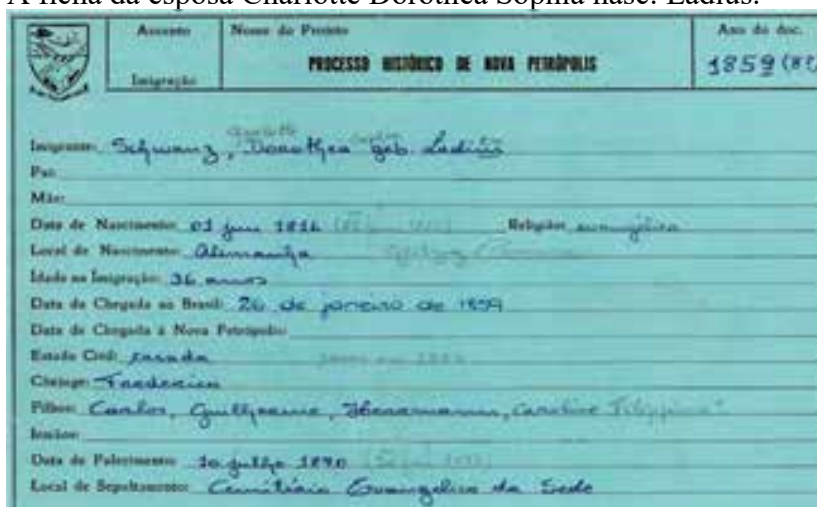 A ficha da esposa Charlotte Dorothea Sophia nasc. Ladius.
Assunto Nome do Projeto Ano do doc.
PROCESSO HISTÓRICO DE NOVA PETRÓPOLIS 1859
Imigração
Imigrante: Schwanz, Dorothea geb.
Pai:
Mãe:
Data de Nascimento: 01 Religião: evangélica
Local de Nascimento: Alemanha
Idade na Imigração: 36 anos
Data de Chegada ao Brasil: 26 de janeiro de 1859
Data de Chegada à Nova Petrópolis:
Estado Civil: casada
Cônjuge: Frederico
Filhos: Carlos, Guilherme, Herrmann, Caroline
Irmãos:
Data de Falecimento: 10 julho 1890
Local de Sepultamento: Cemitério Evangélico da Sede